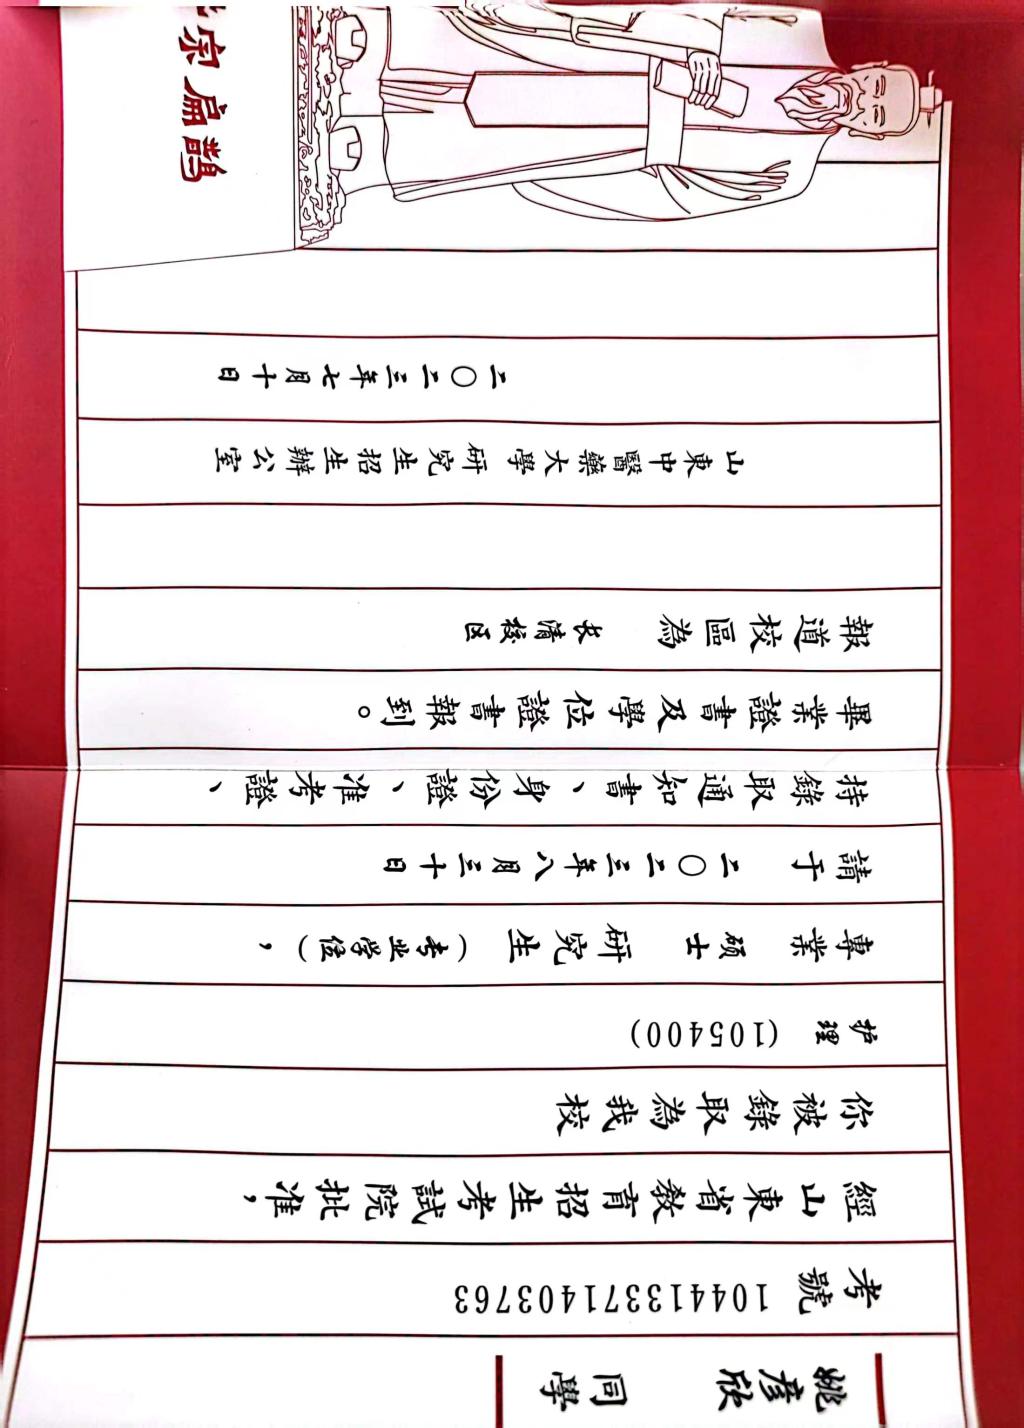 姚彦欣 同學
考號 104413371403763
經山東省教育招生考試院批准，
你被錄取為我校
护理 (105400)
專業 硕士 研究生（专业学位），
請于 二〇二三年八月三十日
持錄取通知書、身份證、准考證、
畢業證書及學位證書報到。
報道校區為 长清校区
山東中醫藥大學研究生招生辦公室
二〇二三年七月十日
宗扁鵲